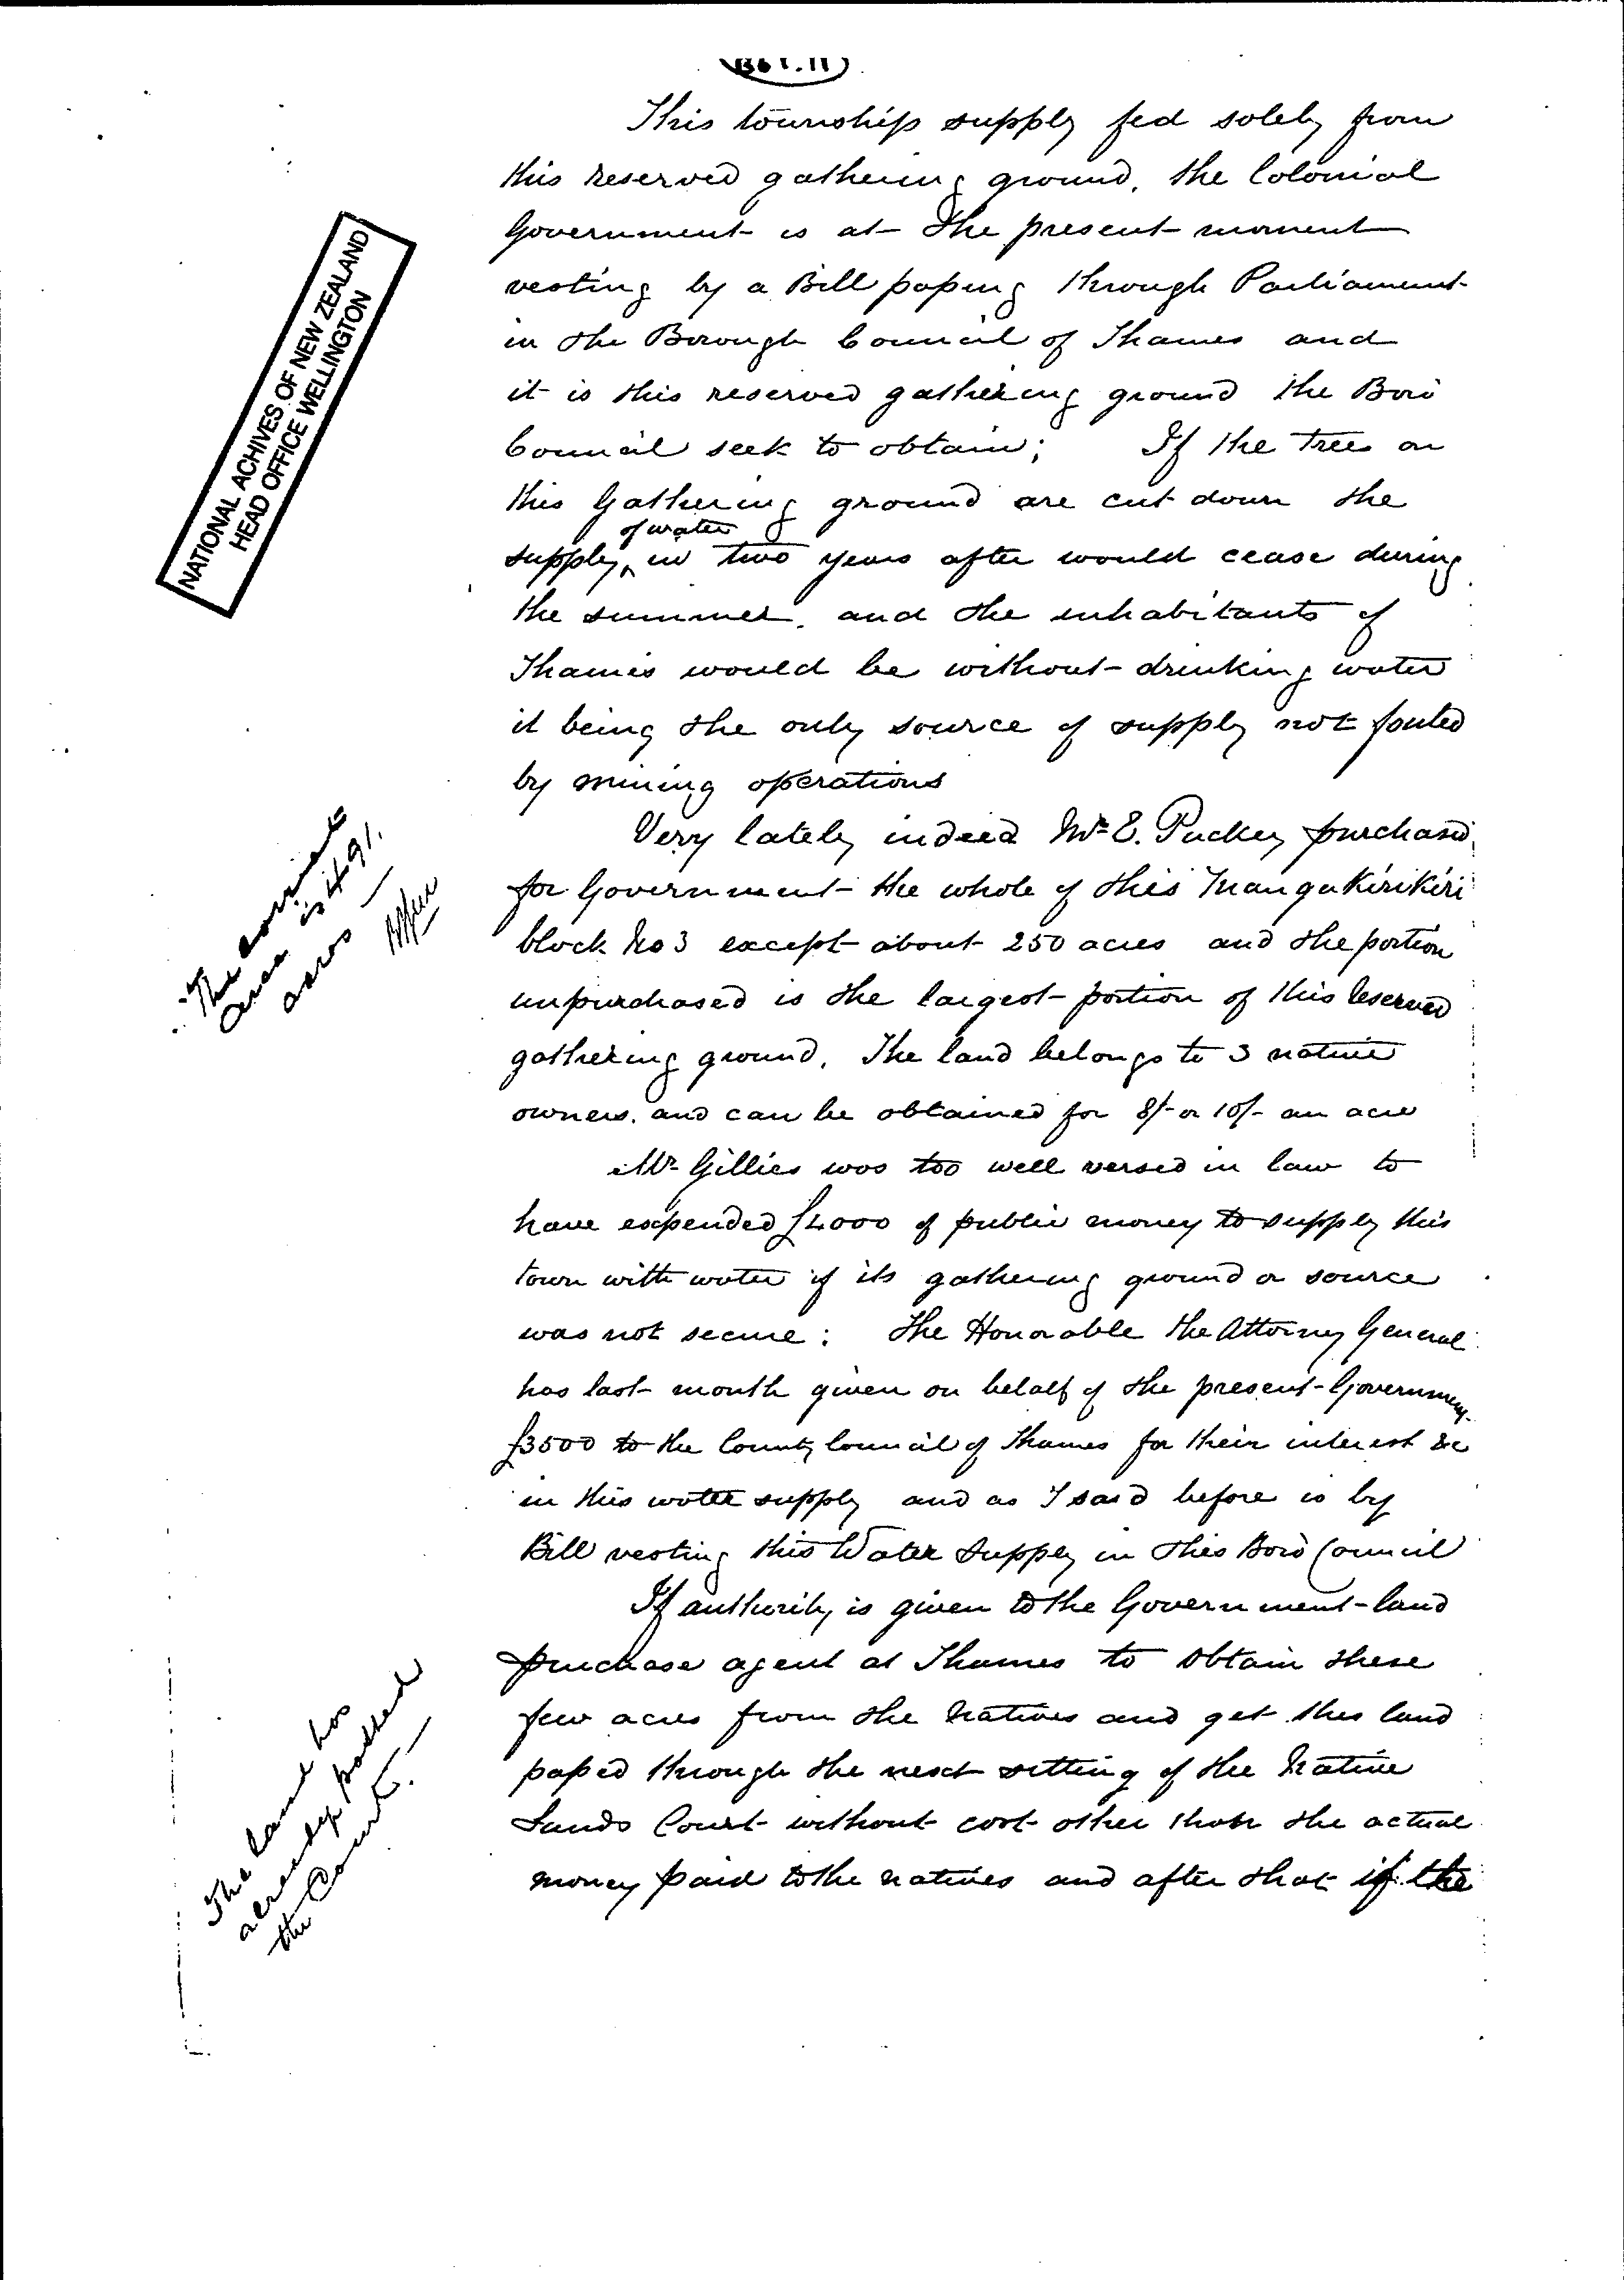 B61.11
This township supply fed solely from
this reserved gathering ground, the Colonial
Government is at the present moment
vesting by a Bill passing through Parliament
in the Borough Council of Thames and
it is this reserved gathering ground the Boro
Council seek to obtain; If the trees on
this Gathering ground are cut down the
of water
supply ^ in two years after would cease during
the summer, and the inhabitants of
Thames would be without drinking water
it being the only source of supply not fouled
by mining operations
Very lately indeed Mr E. Puckey purchased
for Government the whole of this Mangakirikiri
block No 3 except about 250 acres and the portion
unpurchased is the largest portion of this reserved
gathering ground. The land belongs to 3 native
owners. and can be obtained for 8/- or 10/- an acre
Mr Gillies was too well versed in law to
have expended £4000 of public money to supply this
town with water if its gathering ground or source
was not secure: The Honorable the Attorney General
has last month given on behalf of the present Government
£3500 to the County Council of Thames for their interest &c
in this water supply and as I said before is by
Bill vesting this Water Supply in this Boro Council
If authority is given to the Government land
purchase agent at Thames to obtain these
few acres from the Natives and get this land
passed through the next sitting of the Native
Lands Court without cost other than the actual
money paid to the natives and after that if the
NATIONAL ACHIVES OF NEW ZEALAND
HEAD OFFICE WELLINGTON
The
area is 491
acres
The land has
already passed
the Court.